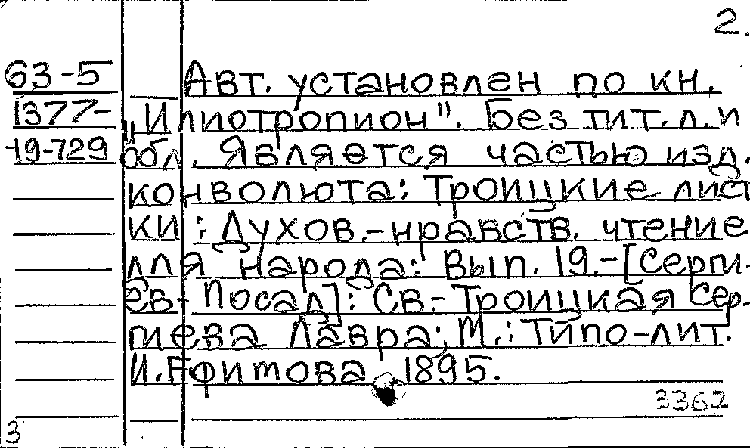 2.
63-5 Авт. установлен по кн.
1377- „Илиотропион". Без тит. л. и
19-729 обл. Является частью изд.
конволюта: Троицкие лист
ки: Духов.-нравств. чтение
для народа: Вып. 19.-[Серги-
ев- Посад]: Св.-Троицкая Сер-
гиева Лавра; М.: Типо-лит.
И. Ефимова 1895.
3362
3